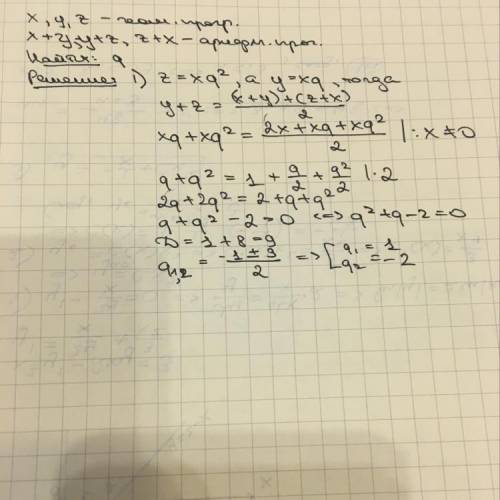 x, y, z – геом. прогр.
x+y, y+z, z+x – арифм. прог.
Найти: q
Решение: 1) z = xq², а y = xq, тогда
y+z = ((x+y)+(z+x))/2
xq + xq² = (2x+xq+xq²)/2 | : x ≠ 0
q+q² = 1 + q/2 + q²/2 | · 2
2q+2q² = 2+q+q²
q+q²-2=0 <=> q²+q-2=0
D = 1+8=9
q₁,₂ = (-1±3)/2 => [q₁ = 1 q₂ = -2